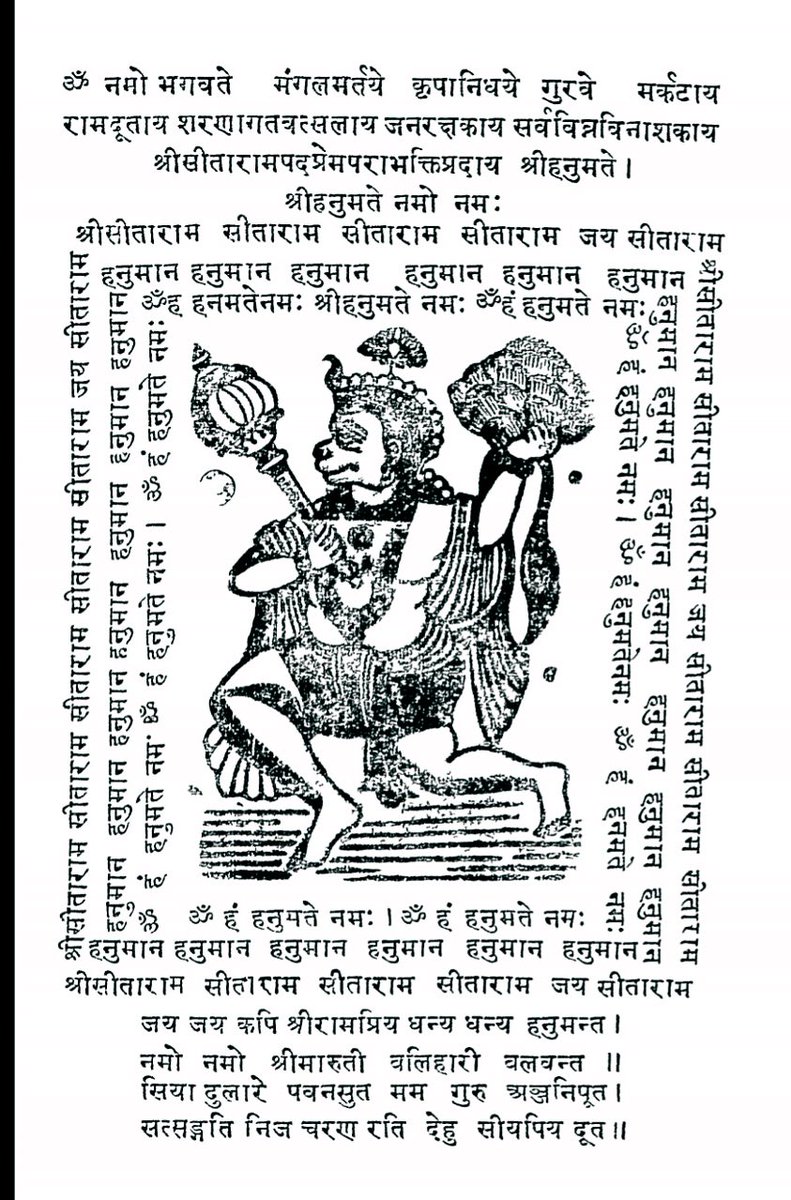 ॐ नमो भगवते मंगलमर्तये कृपानिधये गुरवे मर्कटाय
रामदूताय शरणागतवत्सलाय जनरक्षकाय सर्वविघ्नविनाशकाय
श्रीसीतारामपदप्रेमपराभक्तिप्रदाय श्रीहनुमते।
श्रीहनुमते नमो नमः
श्रीसीताराम सीताराम सीताराम सीताराम जय सीताराम
हनुमान हनुमान हनुमान हनुमान हनुमान हनुमान
ॐह हनमतेनमः श्रीहनुमते नमः ॐहं हनुमते नमः
श्रीसीताराम सीताराम सीताराम सीताराम सीताराम जय सीताराम
हनुमान हनुमान हनुमान हनुमान हनुमान हनुमान हनुमान
ॐ हं हनुमते नमः ॐ हं हनुमते नमः। ॐ हं हनुमते नमः
ॐ हं हनुमते नमः। ॐ हं हनुमतेनमः ॐ हं हनमते नमः
हनुमान हनुमान हनुमान हनुमान हनुमान हनुमान हनुमान
श्रीसीताराम सीताराम सीताराम जय सीताराम सीताराम सीताराम
ॐ हं हनुमते नमः। ॐ हं हनुमते नमः
हनुमान हनुमान हनुमान हनुमान हनुमान हनुमान
श्रीसीताराम सीताराम सीताराम सीताराम जय सीताराम
जय जय कपि श्रीरामप्रिय धन्य धन्य हनुमन्त।
नमो नमो श्रीमारुती वलिहारी वलवन्त॥
सिया दुलारे पवनसुत मम गुरु अञ्जनिपूत।
सत्सङ्गति निज चरण रति देहु सीयपिय दूत॥